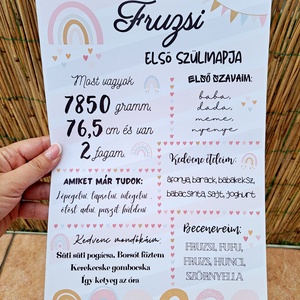 Fruzsi
ELSŐ SZÜLINAPJA
Most vagyok
7850 gramm,
76,5 cm és van
2 fogam.
ELSŐ SZAVAIM:
baba,
dada,
meme,
nyenye
AMIKET MÁR TUDOK:
Kedvenc ételeim:
áfonya, barack, babakeksz,
sajt, joghurt
Kedvenc mondókáim:
Süti süti pogácsa, Borsót főztem
Kerekecske gombocska
Így ketyeg az óra
Beceneveim:
FRUZSI, FUFU,
FRUZS, HUNCI,
SZÖRNYELLA